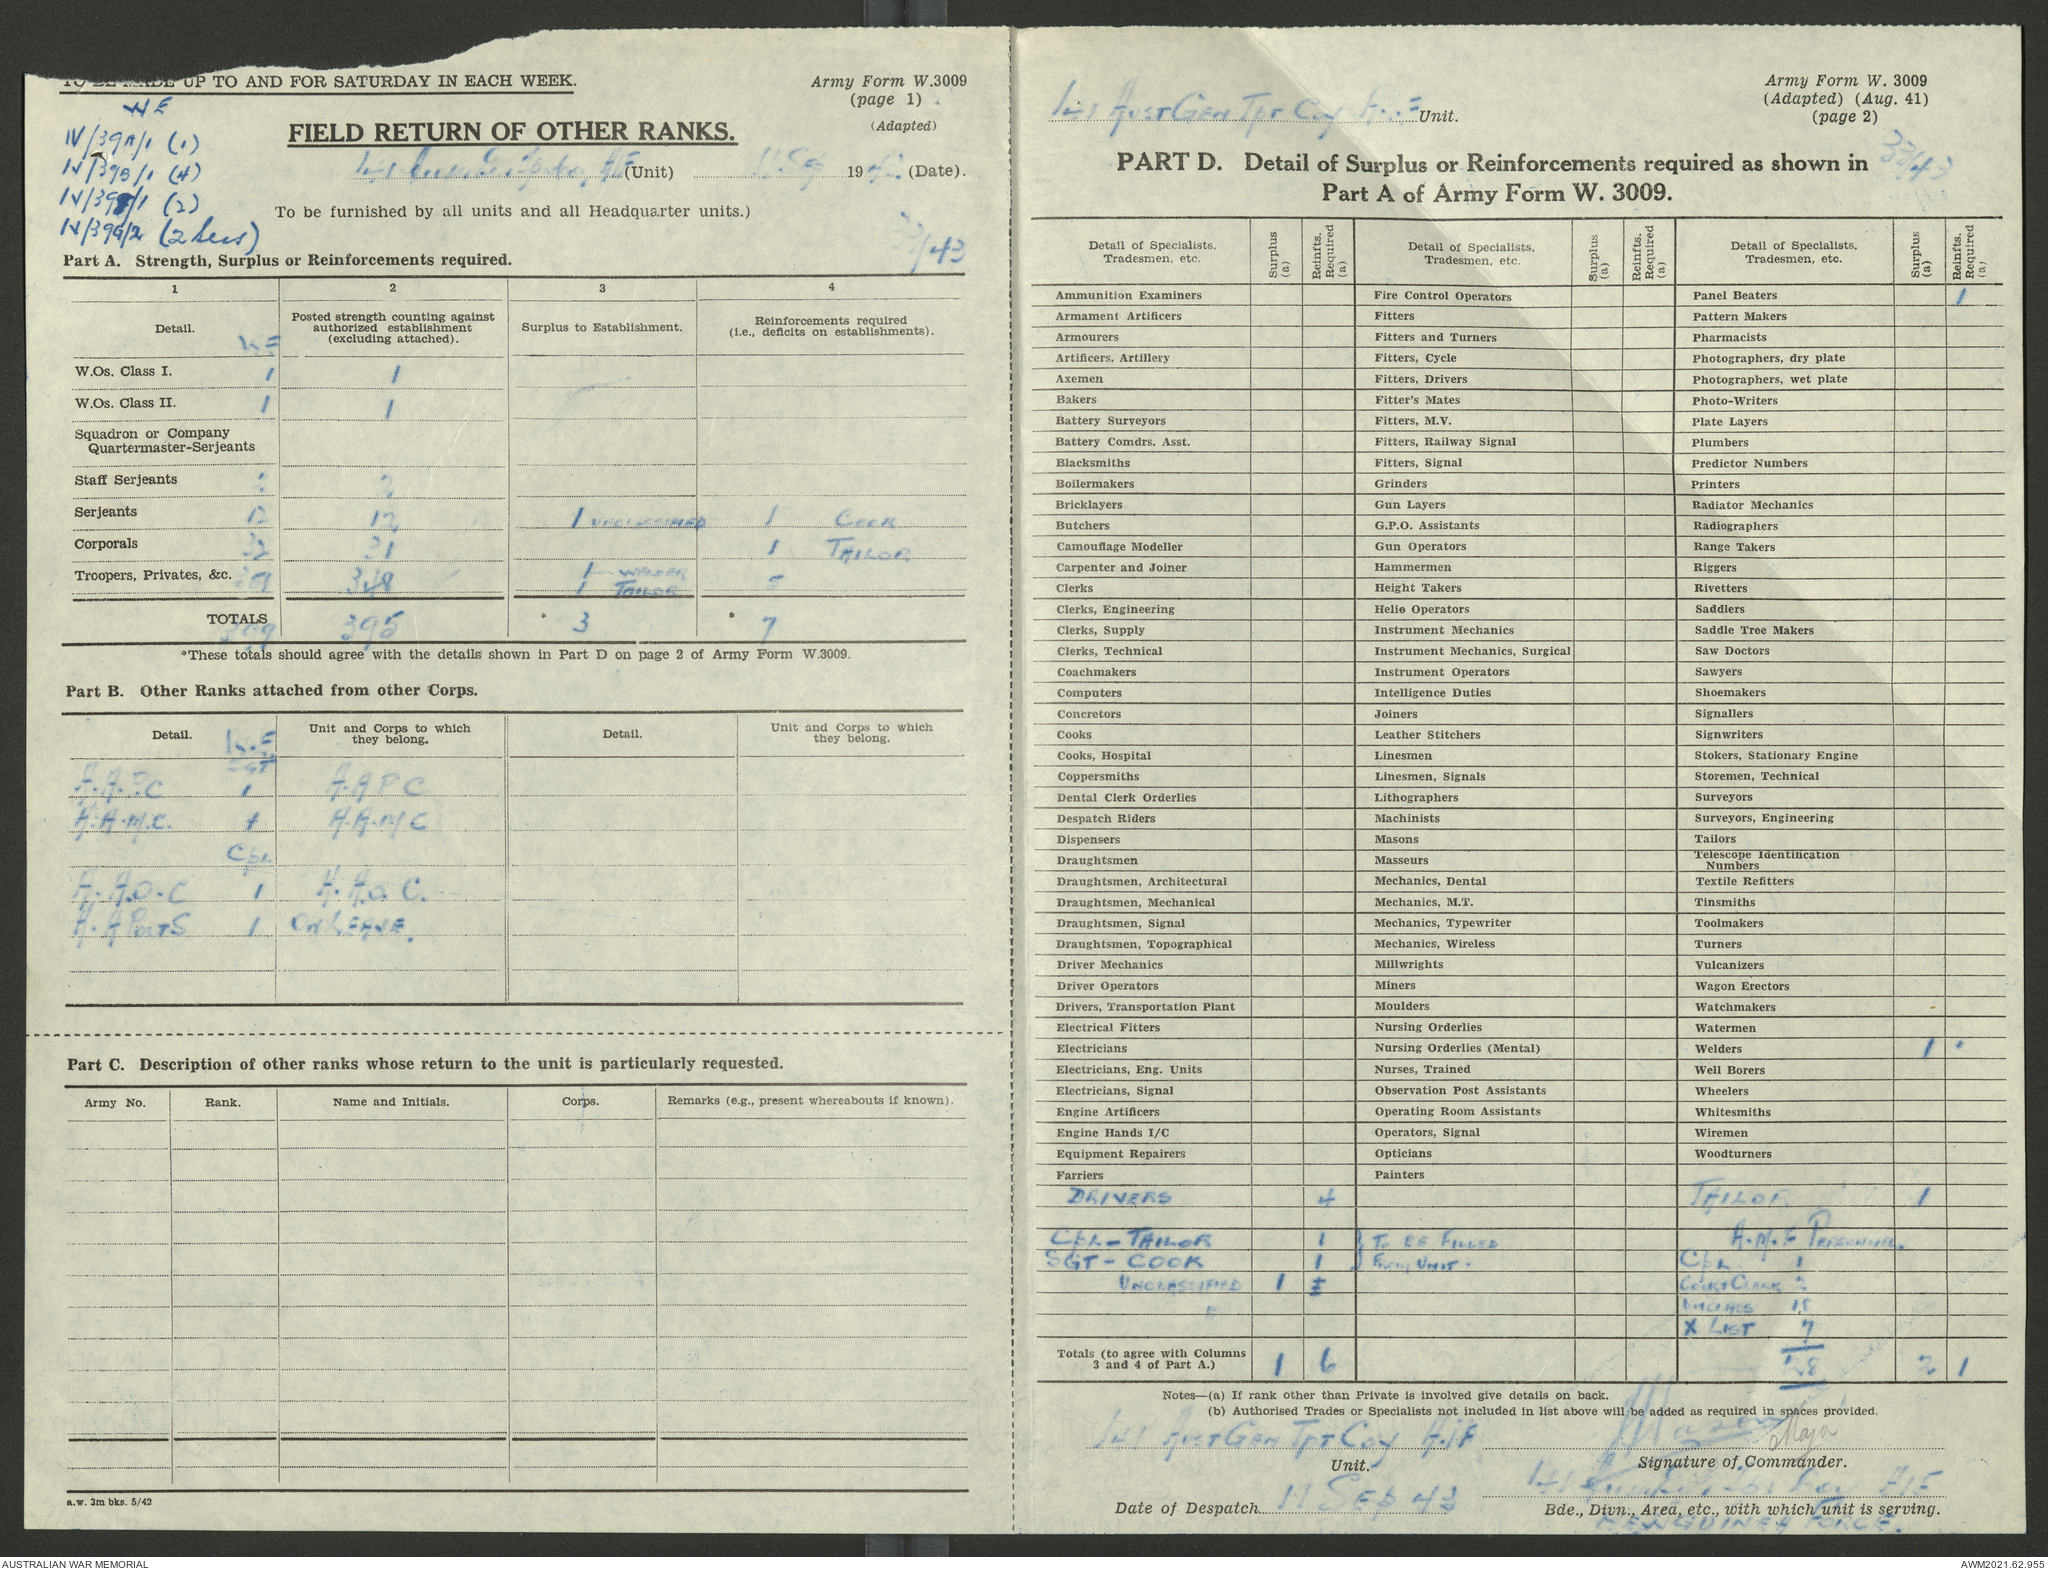 TO BE MADE UP TO AND FOR SATURDAY IN EACH WEEK.
Army Form W.3009
(page 1)
(Adapted)
WE
IV/39A/1 (1)
IV/39B/1 (4)
IV/39F/1 (2)
IV/39G/2 (2 Secs)
FIELD RETURN OF OTHER RANKS.
(Unit) 11 Sep 19 (Date).
To be furnished by all units and all Headquarter units.)
33/43
Part A. Strength, Surplus or Reinforcements required.
1 2 3 4
Detail. W.E Posted strength counting against authorized establishment (excluding attached). Surplus to Establishment. Reinforcements required (i.e., deficits on establishments).
W.Os. Class I. 1 1
W.Os. Class II. 1 1
Squadron or Company Quartermaster-Serjeants
Staff Serjeants 2 2
Serjeants 12 12 1 UNCLASSIFIED 1 COOK
Corporals 32 31 1 TAILOR
Troopers, Privates, &c. 348 1 WELDER 1 TAILOR 5
TOTALS 399 395 * 3 * 7
*These totals should agree with the details shown in Part D on page 2 of Army Form W.3009.
Part B. Other Ranks attached from other Corps.
Detail. W.E Unit and Corps to which they belong. Detail. Unit and Corps to which they belong.
SGT
A.A.P.C 1 A.A P C
A.A.M.C. 1 A.A.M C
Cpl
A.A.O.C 1 A.A.O.C.
A.A PostS 1 ON LEAVE.
Part C. Description of other ranks whose return to the unit is particularly requested.
Army No. Rank. Name and Initials. Corps. Remarks (e.g., present whereabouts if known).
a.w. 3m bks. 5/42
141 Aust Gen Tpt Coy A.I.F Unit.
Army Form W. 3009
(Adapted) (Aug. 41)
(page 2)
33/43
PART D. Detail of Surplus or Reinforcements required as shown in
Part A of Army Form W. 3009.
Detail of Specialists, Tradesmen, etc. Surplus (a) Reinfts. Required (a) Detail of Specialists, Tradesmen, etc. Surplus (a) Reinfts. Required (a) Detail of Specialists, Tradesmen, etc. Surplus (a) Reinfts. Required (a)
Ammunition Examiners Fire Control Operators Panel Beaters 1
Armament Artificers Fitters Pattern Makers
Armourers Fitters and Turners Pharmacists
Artificers, Artillery Fitters, Cycle Photographers, dry plate
Axemen Fitters, Drivers Photographers, wet plate
Bakers Fitter's Mates Photo-Writers
Battery Surveyors Fitters, M.V. Plate Layers
Battery Comdrs. Asst. Fitters, Railway Signal Plumbers
Blacksmiths Fitters, Signal Predictor Numbers
Boilermakers Grinders Printers
Bricklayers Gun Layers Radiator Mechanics
Butchers G.P.O. Assistants Radiographers
Camouflage Modeller Gun Operators Range Takers
Carpenter and Joiner Hammermen Riggers
Clerks Height Takers Rivetters
Clerks, Engineering Helio Operators Saddlers
Clerks, Supply Instrument Mechanics Saddle Tree Makers
Clerks, Technical Instrument Mechanics, Surgical Saw Doctors
Coachmakers Instrument Operators Sawyers
Computers Intelligence Duties Shoemakers
Concretors Joiners Signallers
Cooks Leather Stitchers Signwriters
Cooks, Hospital Linesmen Stokers, Stationary Engine
Coppersmiths Linesmen, Signals Storemen, Technical
Dental Clerk Orderlies Lithographers Surveyors
Despatch Riders Machinists Surveyors, Engineering
Dispensers Masons Tailors
Draughtsmen Masseurs Telescope Identification Numbers
Draughtsmen, Architectural Mechanics, Dental Textile Refitters
Draughtsmen, Mechanical Mechanics, M.T. Tinsmiths
Draughtsmen, Signal Mechanics, Typewriter Toolmakers
Draughtsmen, Topographical Mechanics, Wireless Turners
Driver Mechanics Millwrights Vulcanizers
Driver Operators Miners Wagon Erectors
Drivers, Transportation Plant Moulders Watchmakers
Electrical Fitters Nursing Orderlies Watermen
Electricians Nursing Orderlies (Mental) Welders 1
Electricians, Eng. Units Nurses, Trained Well Borers
Electricians, Signal Observation Post Assistants Wheelers
Engine Artificers Operating Room Assistants Whitesmiths
Engine Hands I/C Operators, Signal Wiremen
Equipment Repairers Opticians Woodturners
Farriers Painters
DRIVERS 4 TAILOR 1
CPL - TAILOR 1 } TO BE FILLED A.M.F PERSONNEL.
SGT - COOK 1 } FROM UNIT. CPL 1
UNCLASSIFIED 1 2
18
X LIST 7
Totals (to agree with Columns 3 and 4 of Part A.) 1 6 28 2 1
Notes—(a) If rank other than Private is involved give details on back.
(b) Authorised Trades or Specialists not included in list above will be added as required in spaces provided.
141 Aust Gen Tpt Coy A.I.F
Major
Unit.
Signature of Commander.
Date of Despatch 11 Sep 43
Bde., Divn., Area, etc., with which unit is serving.
NEW GUINEA FORCE.
AUSTRALIAN WAR MEMORIAL
AWM2021.62.955